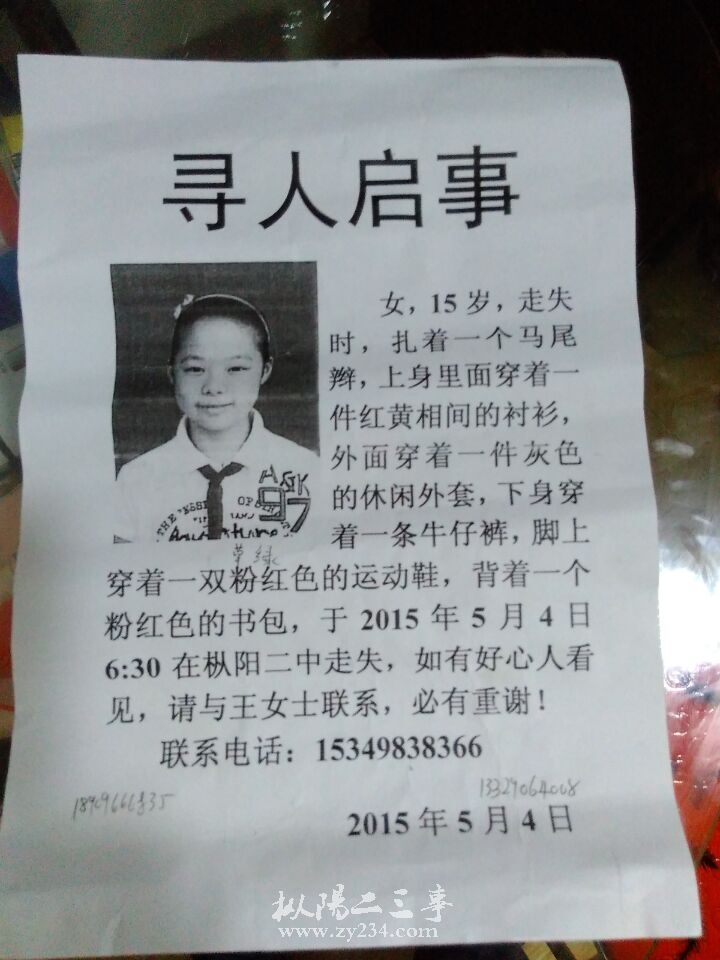 寻人启事
女，15岁，走失
时，扎着一个马尾
辫，上身里面穿着一
件红黄相间的衬衫，
外面穿着一件灰色
的休闲外套，下身穿
着一条牛仔裤，脚上
ASK
97
THE
OF
草绿
穿着一双粉红色的运动鞋，背着一个
粉红色的书包，于 2015 年 5 月 4 日
6:30 在枞阳二中走失，如有好心人看
见，请与王女士联系，必有重谢！
联系电话：15349838366
13329064008
2015 年 5 月 4 日
枞陽二三事
www.zy234.com